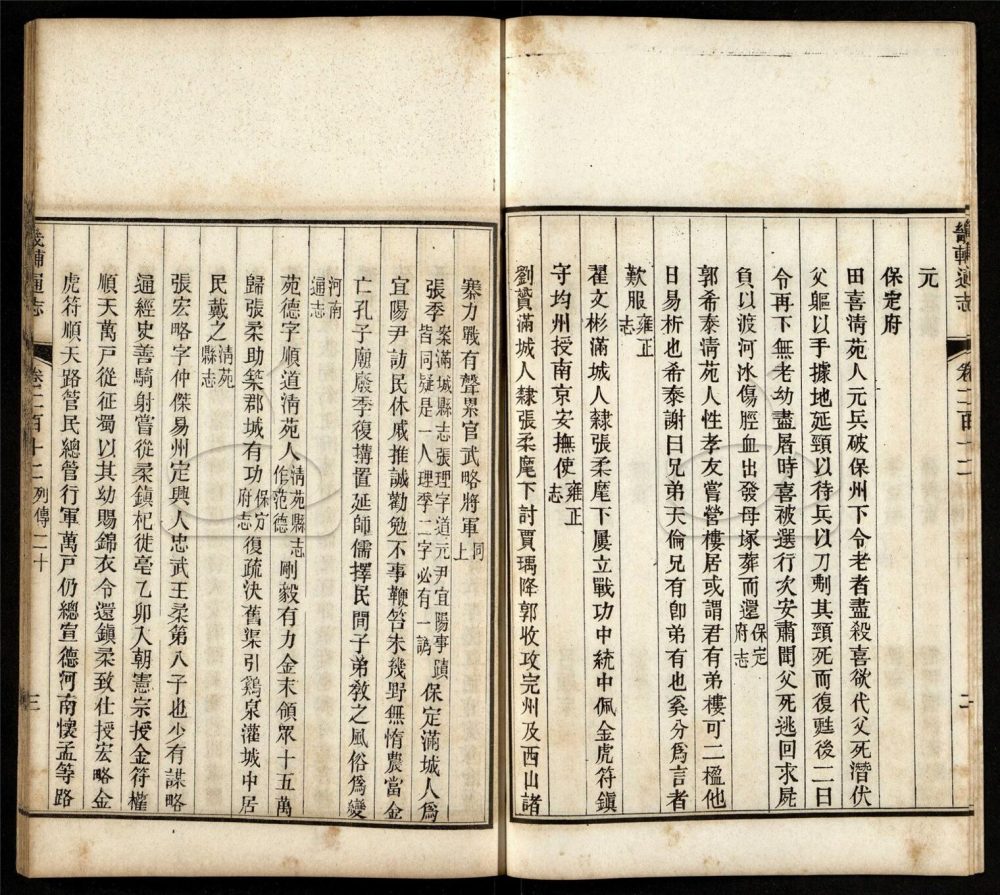 畿輔通志
卷二百一十二
二
元
保定府
田喜淸苑人元兵破保州下令老者盡殺喜欲代父死潛伏
父軀以手據地延頸以待兵以刀劀其頸死而復甦後二日
令再下無老幼盡屠時喜被選行次安肅聞父死逃回求屍
負以渡河冰傷脛血出發母塚葬而還保定府志
郭希泰淸苑人性孝友嘗營樓居或謂君有弟樓可二楹他
日易析也希泰謝曰兄弟天倫兄有卽弟有也奚分爲言者
歎服雍正志
翟文彬滿城人隸張柔麾下屢立戰功中統中佩金虎符鎭
守均州授南京安撫使雍正志
劉贇滿城人隸張柔麾下討賈瑀降郭收攻完州及西山諸
寨力戰有聲累官武略將軍同上
張季案滿城縣志張理字道元尹宜陽事蹟皆同疑是一人理季二字必有一譌保定滿城人爲
宜陽尹訪民休戚推誠勸勉不事鞭笞未幾野無惰農當金
亡孔子廟廢季復搆置延師儒擇民間子弟敎之風俗爲變
河南通志
苑德字順道淸苑人淸苑縣志作范德剛毅有力金末領眾十五萬
歸張柔助築郡城有功保方府志復疏決舊渠引鷄泉灌城中居
民戴之淸苑縣志
張宏略字仲傑易州定興人忠武王柔第八子也少有謀略
通經史善騎射嘗從柔鎭杞徙亳乙卯入朝憲宗授金符權
順天萬戸從征蜀以其幼賜錦衣令還鎭柔致仕授宏略金
虎符順天路管民總管行軍萬戸仍總宣德河南懷孟等路
畿輔通志
卷二百十二 列傳二十
三